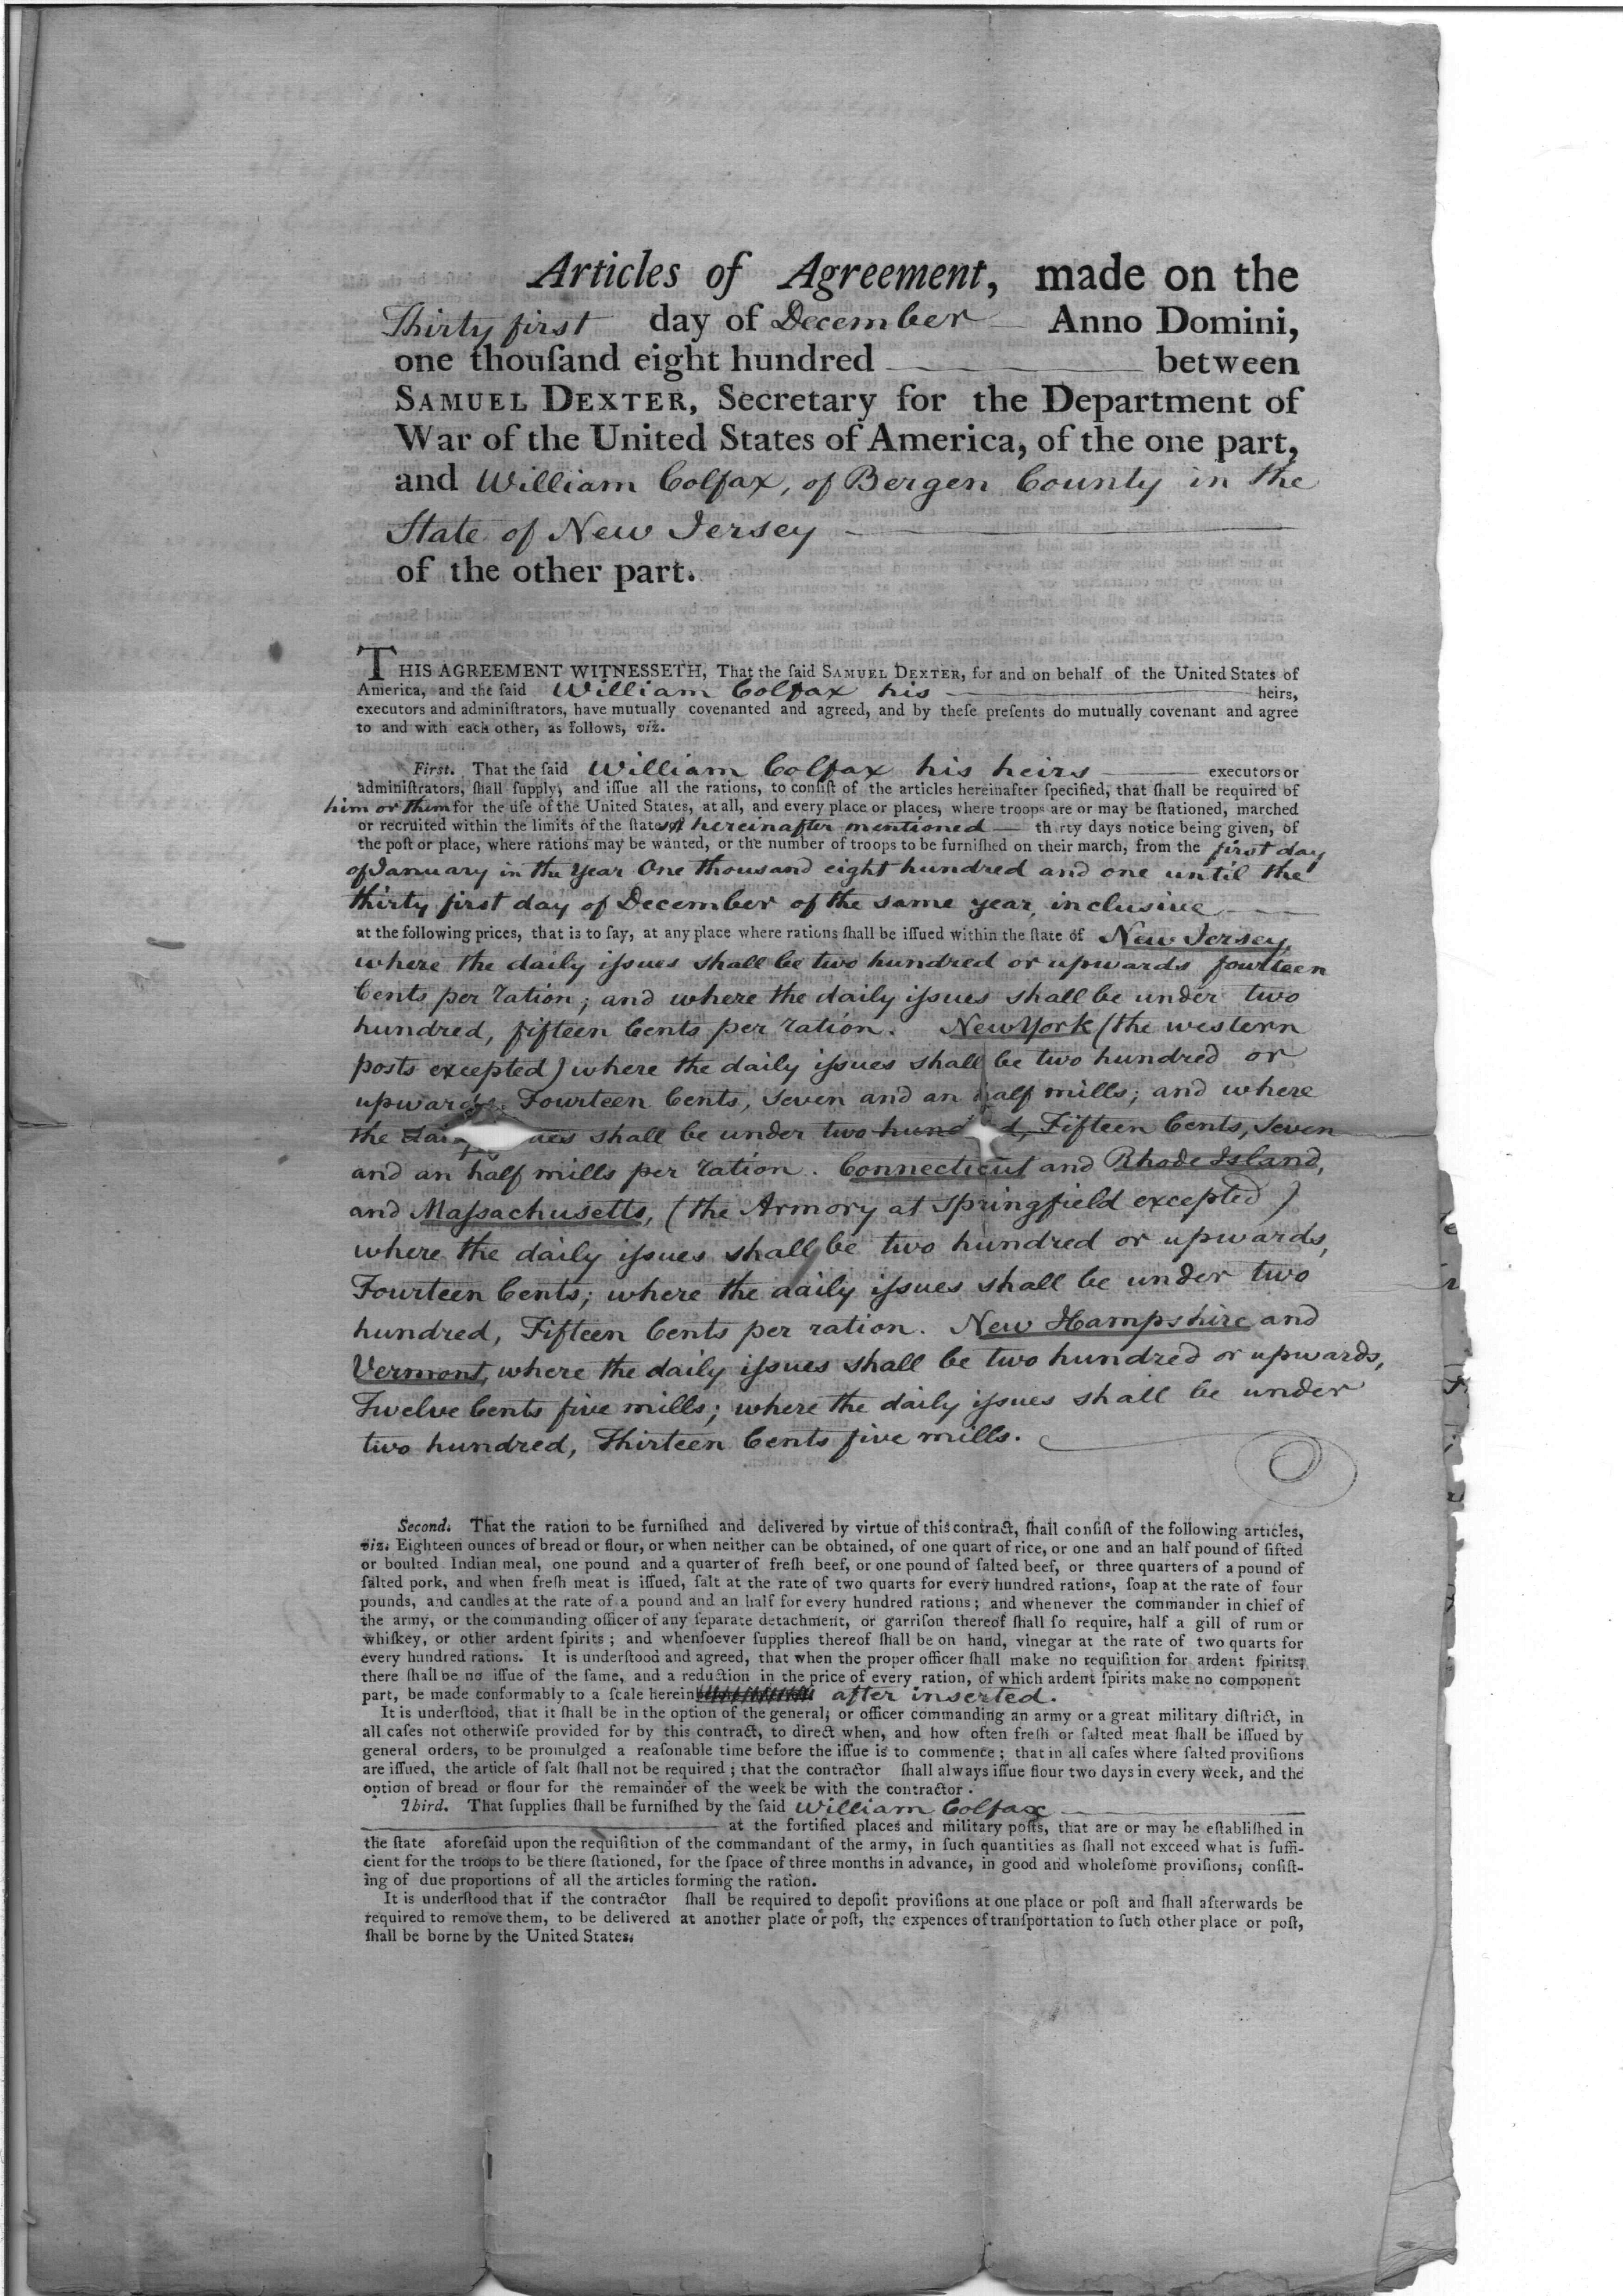 Articles of Agreement, made on the
Thirty first day of December Anno Domini,
one thouſand eight hundred between
SAMUEL DEXTER, Secretary for the Department of
War of the United States of America, of the one part,
and William Colfax, of Bergen County in the
State of New Jersey
of the other part.
THIS AGREEMENT WITNESSETH, That the ſaid SAMUEL DEXTER, for and on behalf of the United States of
America, and the ſaid William Colfax his heirs,
executors and adminiſtrators, have mutually covenanted and agreed, and by theſe preſents do mutually covenant and agree
to and with each other, as follows, viz.
First. That the ſaid William Colfax his heirs executors or
adminiſtrators, ſhall ſupply, and iſſue all the rations, to conſiſt of the articles hereinafter ſpecified, that ſhall be required of
him or them for the uſe of the United States, at all, and every place or places, where troops are or may be ſtationed, marched
or recruited within the limits of the ſtates hereinafter mentioned — thirty days notice being given, of
the poſt or place, where rations may be wanted, or the number of troops to be furniſhed on their march, from the first day
of January in the Year One thousand eight hundred and one until the
thirty first day of December of the same year, inclusive
at the following prices, that is to ſay, at any place where rations ſhall be iſſued within the ſtate of New Jersey,
where the daily iſsues shall be two hundred or upwards fourteen
Cents per ration; and where the daily iſsues shall be under two
hundred, fifteen Cents per ration. New York (the western
posts excepted) where the daily iſsues shall be two hundred or
upwards. Fourteen Cents, seven and an half mills; and where
the shall be under two Fifteen Cents, seven
and an half mills per ration. Connecticut and Rhode Island,
and Maſsachusetts, (the Armory at Springfield excepted)
where the daily iſsues shall be two hundred or upwards,
Fourteen Cents; where the daily iſsues shall be under two
hundred, Fifteen Cents per ration. New Hampshire and
Vermont, where the daily iſsues shall be two hundred or upwards,
Twelve Cents five mills; where the daily iſsues shall be under
two hundred, Thirteen Cents five mills.
Second. That the ration to be furniſhed and delivered by virtue of this contract, ſhall conſiſt of the following articles,
viz. Eighteen ounces of bread or flour, or when neither can be obtained, of one quart of rice, or one and an half pound of ſifted
or boulted Indian meal, one pound and a quarter of freſh beef, or one pound of ſalted beef, or three quarters of a pound of
ſalted pork, and when freſh meat is iſſued, ſalt at the rate of two quarts for every hundred rations, ſoap at the rate of four
pounds, and candles at the rate of a pound and an half for every hundred rations; and whenever the commander in chief of
the army, or the commanding officer of any ſeparate detachment, or garriſon thereof ſhall ſo require, half a gill of rum or
whiſkey, or other ardent ſpirits; and whenſoever ſupplies thereof ſhall be on hand, vinegar at the rate of two quarts for
every hundred rations. It is underſtood and agreed, that when the proper officer ſhall make no requiſition for ardent ſpirits;
there ſhall be no iſſue of the ſame, and a reduction in the price of every ration, of which ardent ſpirits make no component
part, be made conformably to a ſcale herein after inserted.
It is underſtood, that it ſhall be in the option of the general, or officer commanding an army or a great military diſtrict, in
all caſes not otherwiſe provided for by this contract, to direct when, and how often freſh or ſalted meat ſhall be iſſued by
general orders, to be promulged a reaſonable time before the iſſue is to commence; that in all caſes where ſalted proviſions
are iſſued, the article of ſalt ſhall not be required; that the contractor ſhall always iſſue flour two days in every week, and the
option of bread or flour for the remainder of the week be with the contractor.
Third. That ſupplies ſhall be furniſhed by the ſaid William Colfax
at the fortified places and military poſts, that are or may be eſtabliſhed in
the ſtate aforeſaid upon the requiſition of the commandant of the army, in ſuch quantities as ſhall not exceed what is ſuffi-
cient for the troops to be there ſtationed, for the ſpace of three months in advance, in good and wholeſome proviſions, conſiſt-
ing of due proportions of all the articles forming the ration.
It is underſtood that if the contractor ſhall be required to depoſit proviſions at one place or poſt and ſhall afterwards be
required to remove them, to be delivered at another place or poſt, the expences of tranſportation to ſuch other place or poſt,
ſhall be borne by the United States.